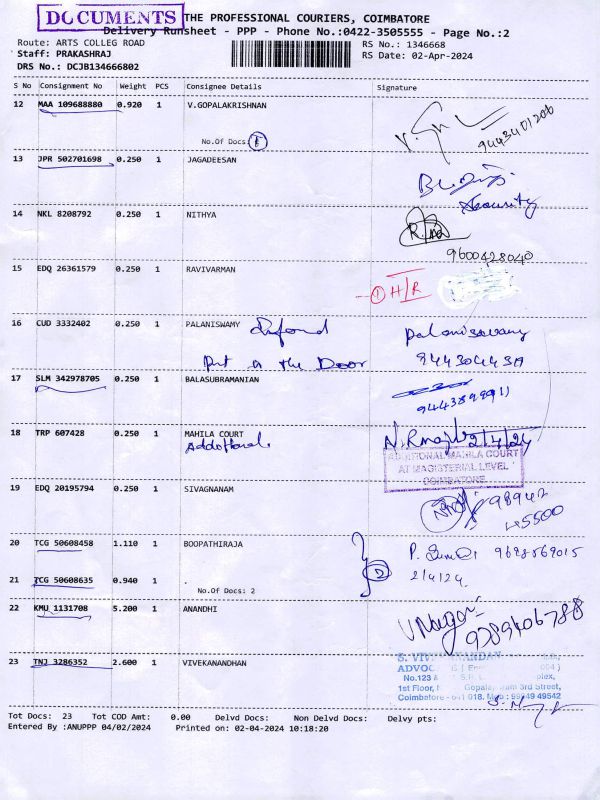 DOCUMENTS
THE PROFESSIONAL COURIERS, COIMBATORE
Delivery Runsheet - PPP - Phone No.:0422-3505555 - Page No.:2
Route: ARTS COLLEG ROAD
RS No.: 1346668
Staff: PRAKASHRAJ
RS Date: 02-Apr-2024
DRS No.: DCJB134666802
S No Consignment No Weight PCS Consignee Details Signature
12 MAA 109688880 0.920 1 V.GOPALAKRISHNAN
9443401206
No.Of Docs:
13 JPR 502701698 0.250 1 JAGADEESAN
Security
14 NKL 8208792 0.250 1 NITHYA
9600428040
15 EDQ 26361579 0.250 1 RAVIVARMAN
1 H/R
16 CUD 3332402 0.250 1 PALANISWAMY
Palaniswamy
Put in the Door
17 SLM 342978705 0.250 1 BALASUBRAMANIAN
18 TRP 607428 0.250 1 MAHILA COURT
Additional
2/4/24
ADDITIONAL MAHILA COURT
AT MAGISTERIAL LEVEL
COIMBATORE
19 EDQ 20195794 0.250 1 SIVAGNANAM
98942
45500
20 TCG 50608458 1.110 1 BOOPATHIRAJA
2
2/4/24
21 TCG 50608635 0.940 1
No.Of Docs: 2
22 KMU 1131708 5.200 1 ANANDHI
9789406788
23 TNJ 3286352 2.600 1 VIVEKANANDHAN
ADVOC
No.123
1st Floor, Gopala 3rd Street,
Coimbatore - 641 018. 49542
Tot Docs: 23 Tot COD Amt: 0.00 Delvd Docs: Non Delvd Docs: Delvy pts:
Entered By :ANUPPP 04/02/2024 Printed on: 02-04-2024 10:18:20